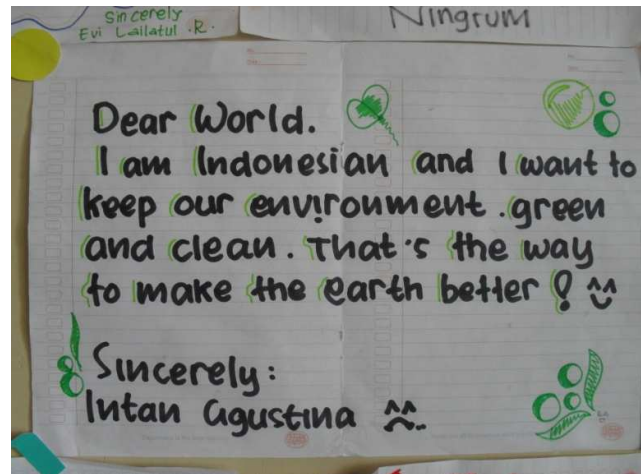 Sincerely
Evi Lailatul .R.
Ningrum
Dear World.
I am Indonesian and I want to
keep our environment .green
and clean. That's the way
to make the earth better!
Sincerely:
Intan Agustina